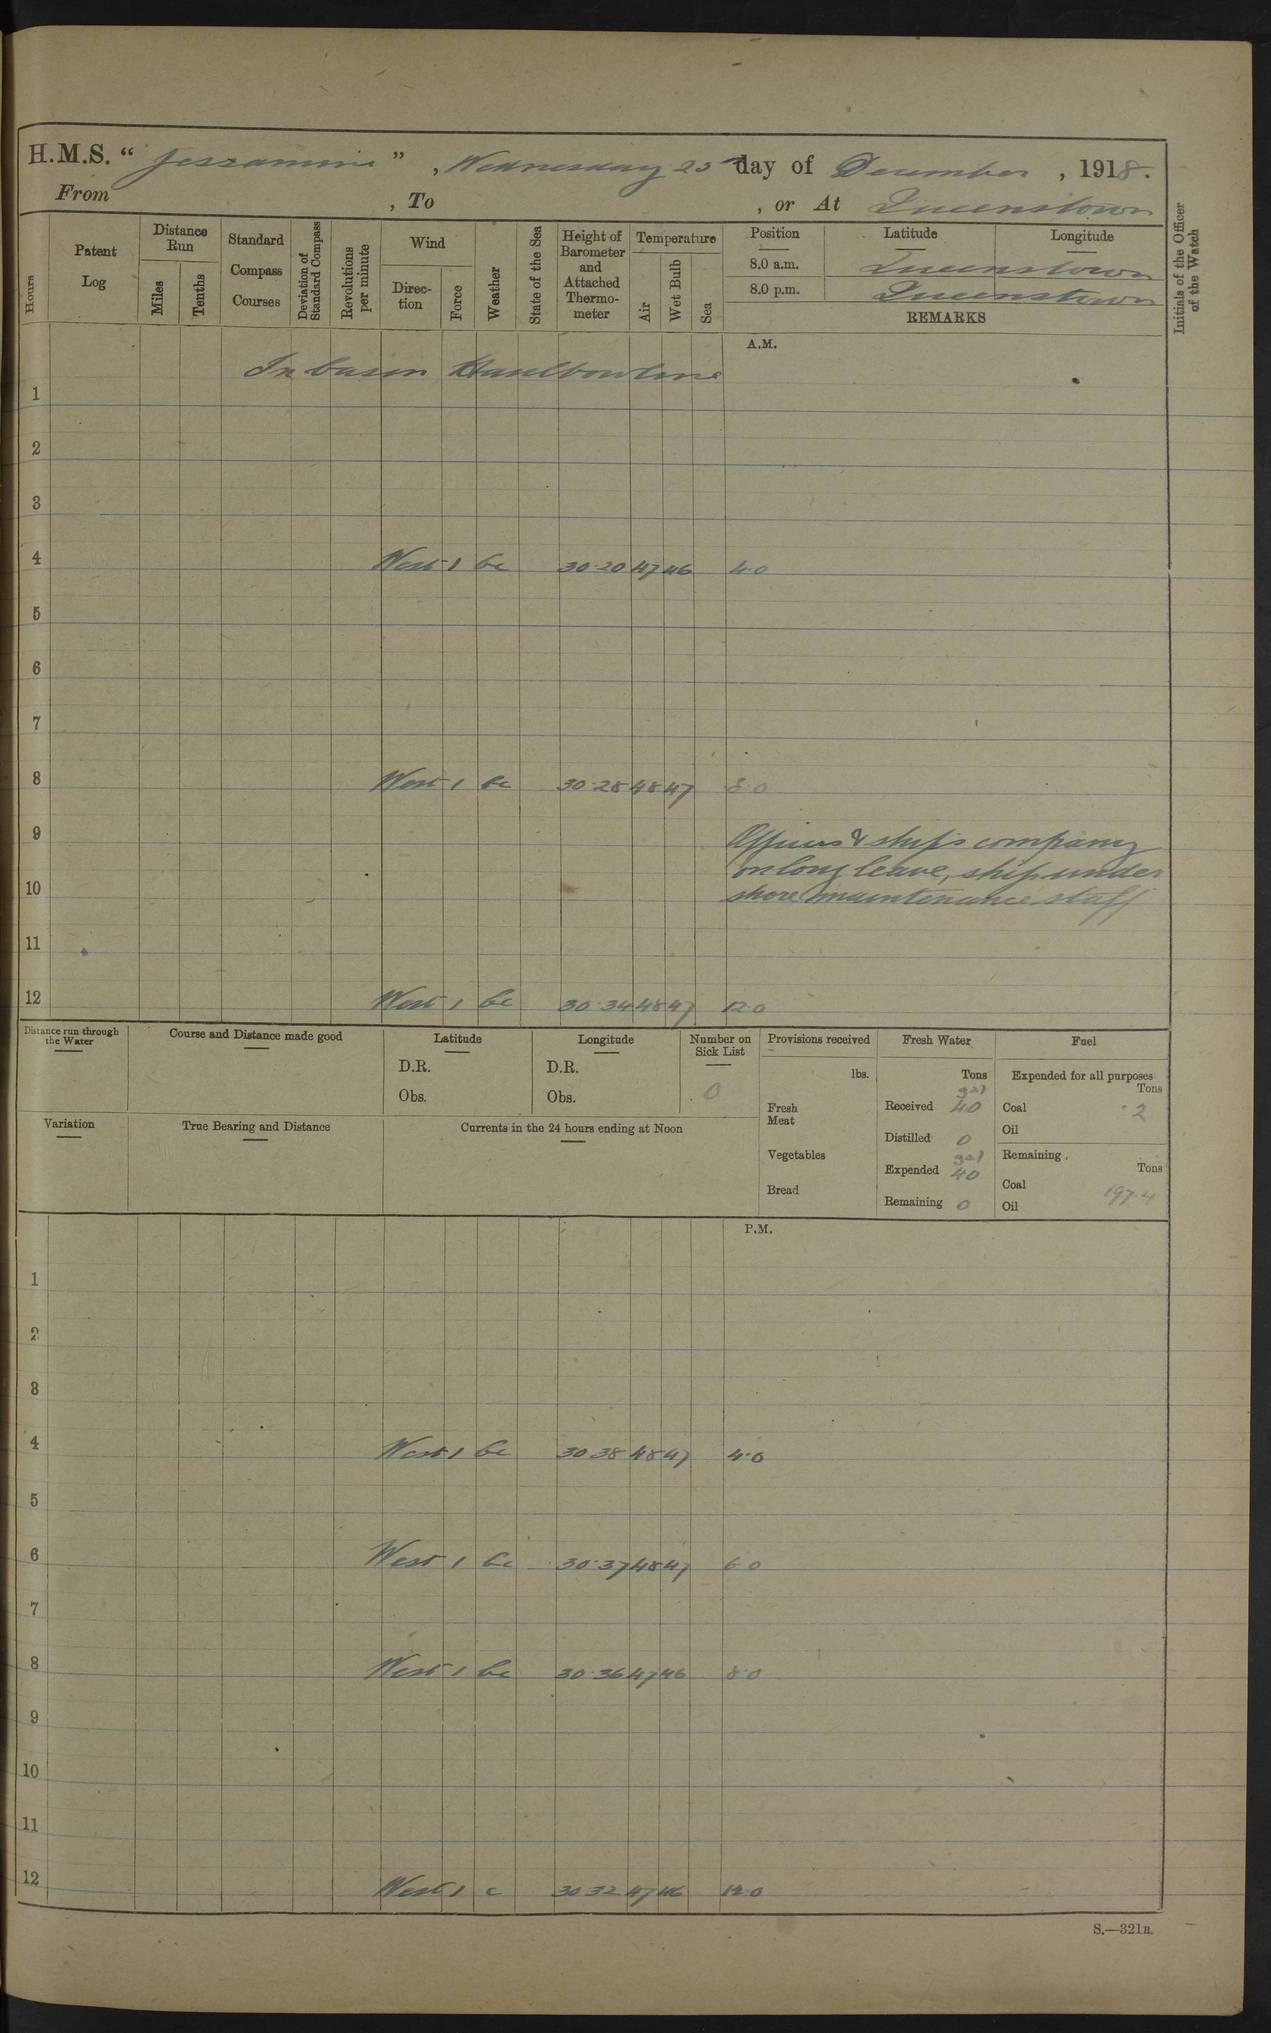 H.M.S. “Jessamine”, Wednesday 25th day of December, 1918.
From , To , or At Queenstown
Hours
Patent Log
Distance Run
Miles
Tenths
Standard Compass Courses
Deviation of Standard Compass
Revolutions per minute
Wind
Direction
Force
Weather
State of the Sea
Height of Barometer and Attached Thermometer
Temperature
Air
Wet Bulb
Sea
Position Latitude Longitude
8.0 a.m. Queenstown
8.0 p.m. Queenstown
REMARKS
Initials of the Officer of the Watch
A.M.
In basin Haulbowline
1
2
3
4 West 1 bc 30.20 47 46 4.0
5
6
7
8 West 1 bc 30.28 48 47 8.0
9 Officers & ship's company
on long leave, ship under
10 shore maintenance staff
11
12 West 1 bc 30.34 48 47 12.0
Distance run through the Water
Course and Distance made good
Latitude
D.R.
Obs.
Longitude
D.R.
Obs.
Number on Sick List
0
Variation
True Bearing and Distance
Currents in the 24 hours ending at Noon
Provisions received
lbs.
Fresh Meat
Vegetables
Bread
Fresh Water
Tons
Received gal 40
Distilled 0
Expended gal 40
Remaining 0
Fuel
Expended for all purposes
Tons
Coal .2
Oil
Remaining
Tons
Coal 197.4
Oil
P.M.
1
2
3
4 West 1 bc 30 38 48 47 4.0
5
6 West 1 bc 30.37 48 47 6.0
7
8 West 1 bc 30.36 47 46 8.0
9
10
11
12 West 1 c 30 32 47 46 12.0
S.—321B.